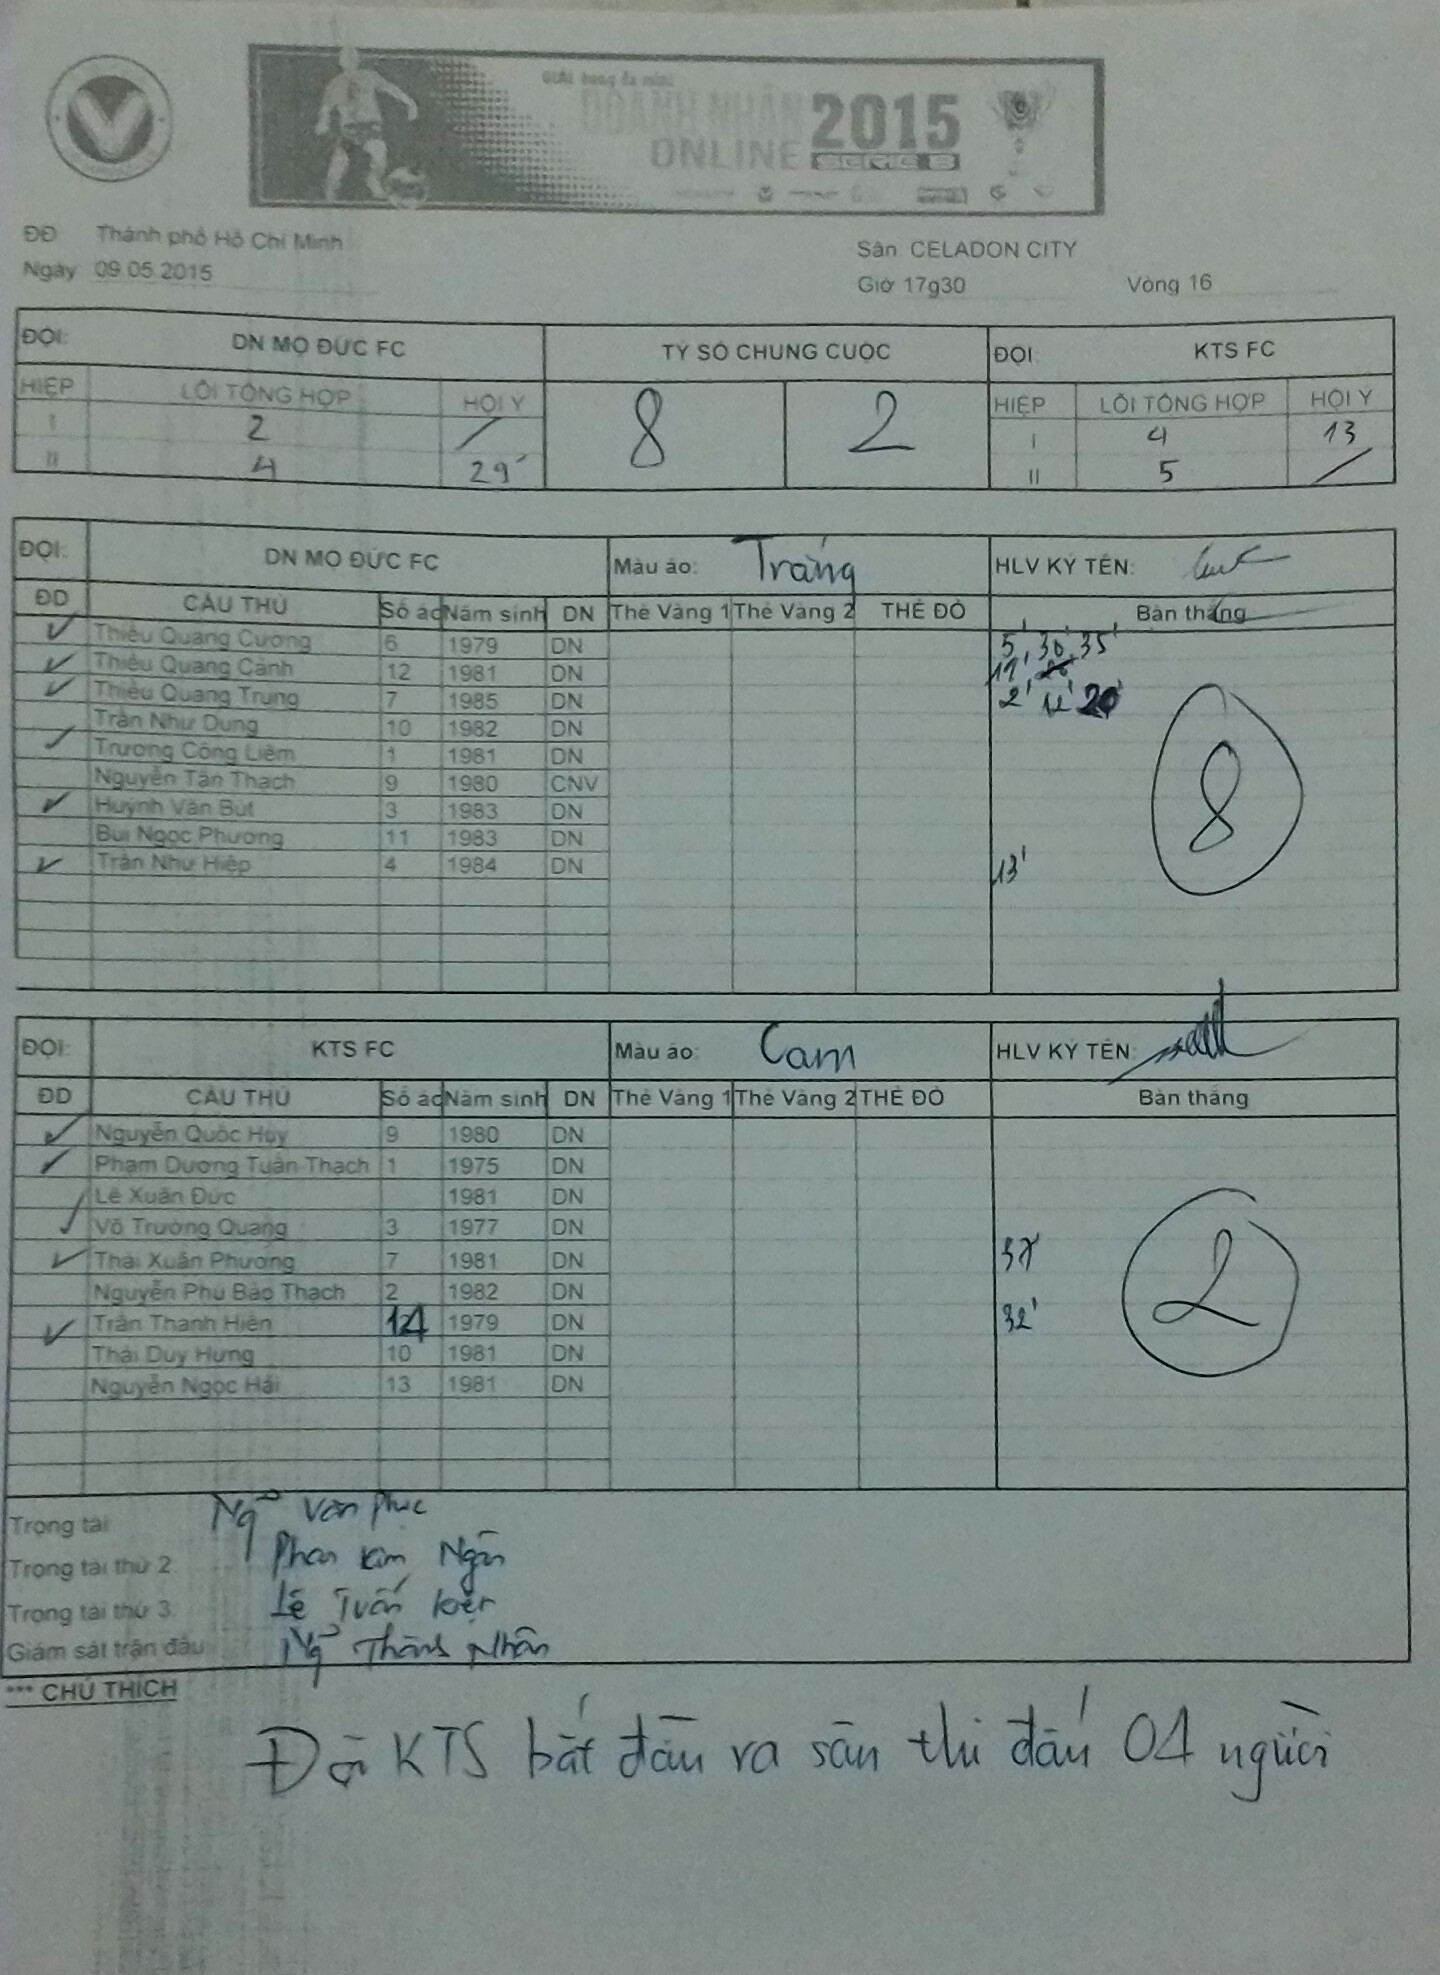 GIẢI bóng đá mini
DOANH NHÂN 2015
ONLINE SERIE B
ĐĐ Thành phố Hồ Chí Minh
Sân CELADON CITY
Ngày 09.05.2015
Giờ 17g30 Vòng 16
ĐỘI: DN MỘ ĐỨC FC TỶ SỐ CHUNG CUỘC ĐỘI KTS FC
HIỆP LỖI TỔNG HỢP HỘI Ý 8 2 HIỆP LỖI TỔNG HỢP HỘI Ý
I 2 / I 4 13
II 4 29' II 5 /
ĐỘI: DN MỘ ĐỨC FC Màu áo: Trắng HLV KÝ TÊN:
ĐD CẦU THỦ Số áo Năm sinh DN Thẻ Vàng 1 Thẻ Vàng 2 THẺ ĐỎ Bàn thắng
Thiều Quang Cường 6 1979 DN 5', 30', 35'
Thiều Quang Cảnh 12 1981 DN 17'
Thiều Quang Trung 7 1985 DN 2' 12' 20'
Trần Như Dung 10 1982 DN
Trương Công Liêm 1 1981 DN
Nguyễn Tấn Thạch 9 1980 CNV
Huỳnh Văn Bút 3 1983 DN
Bùi Ngọc Phương 11 1983 DN
Trần Như Hiệp 4 1984 DN 13'
8
ĐỘI: KTS FC Màu áo: Cam HLV KÝ TÊN:
ĐD CẦU THỦ Số áo Năm sinh DN Thẻ Vàng 1 Thẻ Vàng 2 THẺ ĐỎ Bàn thắng
Nguyễn Quốc Huy 9 1980 DN
Phạm Dương Tuấn Thạch 1 1975 DN
Lê Xuân Đức 1981 DN
Võ Trường Quang 3 1977 DN
Thái Xuân Phương 7 1981 DN
Nguyễn Phú Bảo Thạch 2 1982 DN
Trần Thanh Hiền 14 1979 DN 32'
Thái Duy Hưng 10 1981 DN
Nguyễn Ngọc Hải 13 1981 DN
2
Trọng tài Ng~ Văn Phúc
Trọng tài thứ 2 Phan Kim Ngân
Trọng tài thứ 3. Lê Tuấn Kiệt
Giám sát trận đấu Ng~ Thành Nhân
*** CHÚ THÍCH
Đội KTS bắt đầu ra sân thi đấu 04 người